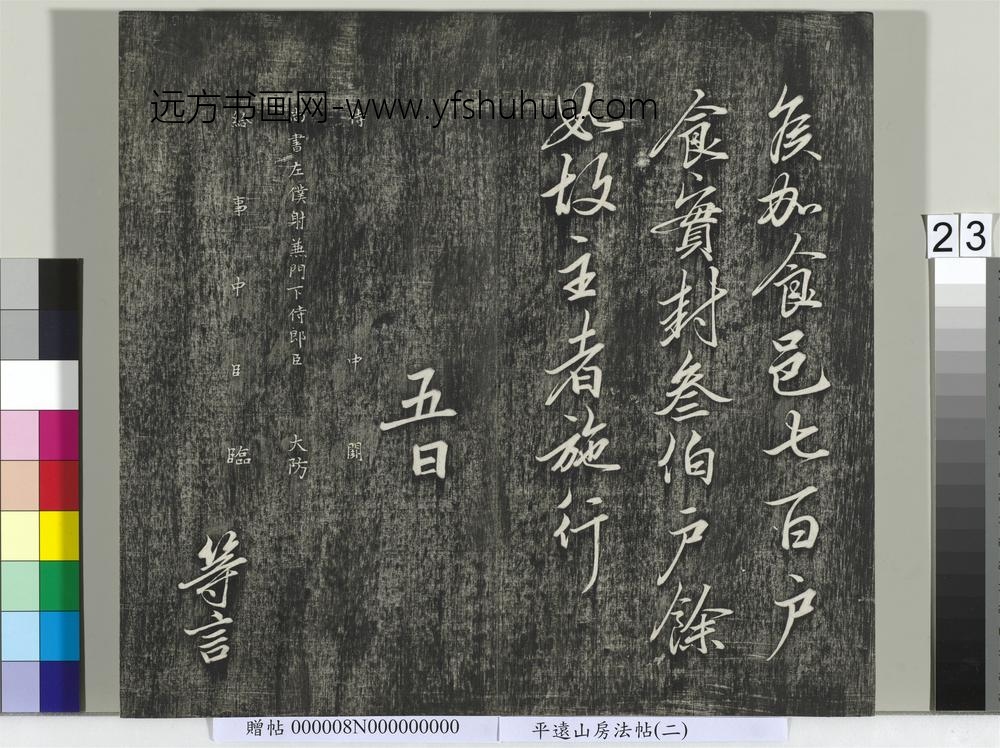 侯加食邑七百户
食實封叁伯户餘
如故主者施行
五日
侍中闕
尚書左僕射兼門下侍郎臣大防
給事中臣臨
等言
远方书画网-www.yfshuhua.com
23
贈帖 000008N000000000
平遠山房法帖(二)